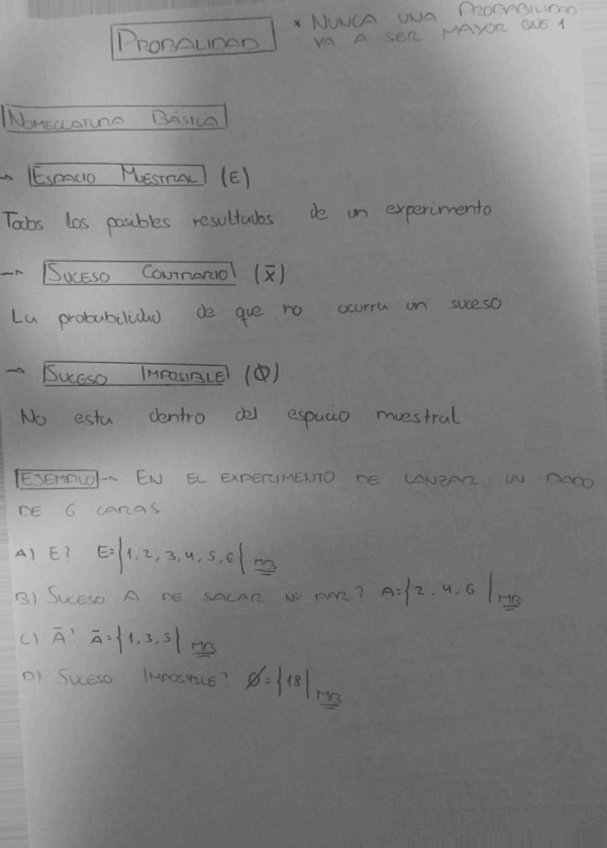 * NUNCA UNA PROBABILIDAD
VA A SER MAYOR QUE 1
PROBALIDAD
NOMECLATURA BÁSICA
→ ESPACIO MUESTRAL (E)
Todos los posibles resultados de un experimento
→ SUCESO CONTRARIO (x̄)
La probabilidad de que no ocurra un suceso
→ SUCESO IMPOSIBLE (Ø)
No esta dentro del espacio muestral
EJEMPLO → EN EL EXPERIMENTO DE LANZAR UN DADO
DE 6 CARAS
A) E? E={1,2,3,4,5,6} MB
B) SUCESO A DE SACAR Nº PAR? A={2,4,6} MB
C) Ā? Ā={1,3,5} MB
D) SUCESO IMPOSIBLE? Ø={18} MB